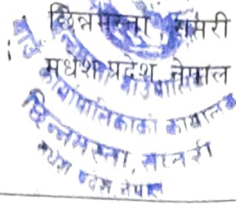 छिन्नमस्ता, सप्तरी
मधेश प्रदेश, नेपाल
गाउँ कार्यपालिकाको कार्यालय
छिन्नमस्ता, सप्तरी
मधेश प्रदेश, नेपाल